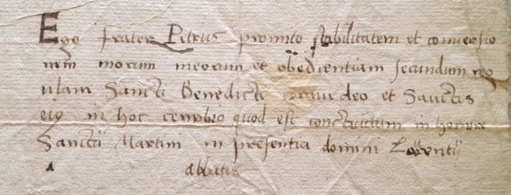 Ego frater Petrus promito stabilitatem et conversio
nem morum meorum et obedientiam secundum reg
ulam Sancti Benedicti coram deo et Sanctis
eiq in hoc cenobio quod est constructum in honore
Sanctii Martini in presentia domini Laurentii
Abbatis